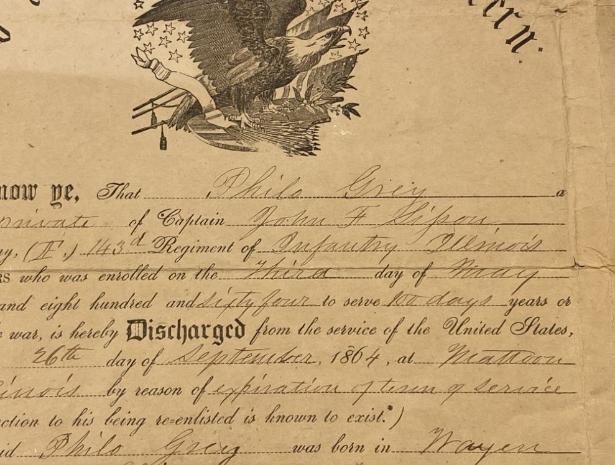 ern:
now ye, That Philo Grey a
private of Captain John F Gibson
y, (I.) 143d Regiment of Infantry Illinois
rs who was enrolled on the third day of May
and eight hundred and sixty four to serve 100 days years or
war, is hereby Discharged from the service of the United States,
26th day of September, 1864, at Mattoon
linois by reason of expiration of term of service
ction to his being re-enlisted is known to exist.)
id Philo Grey was born in Wayen